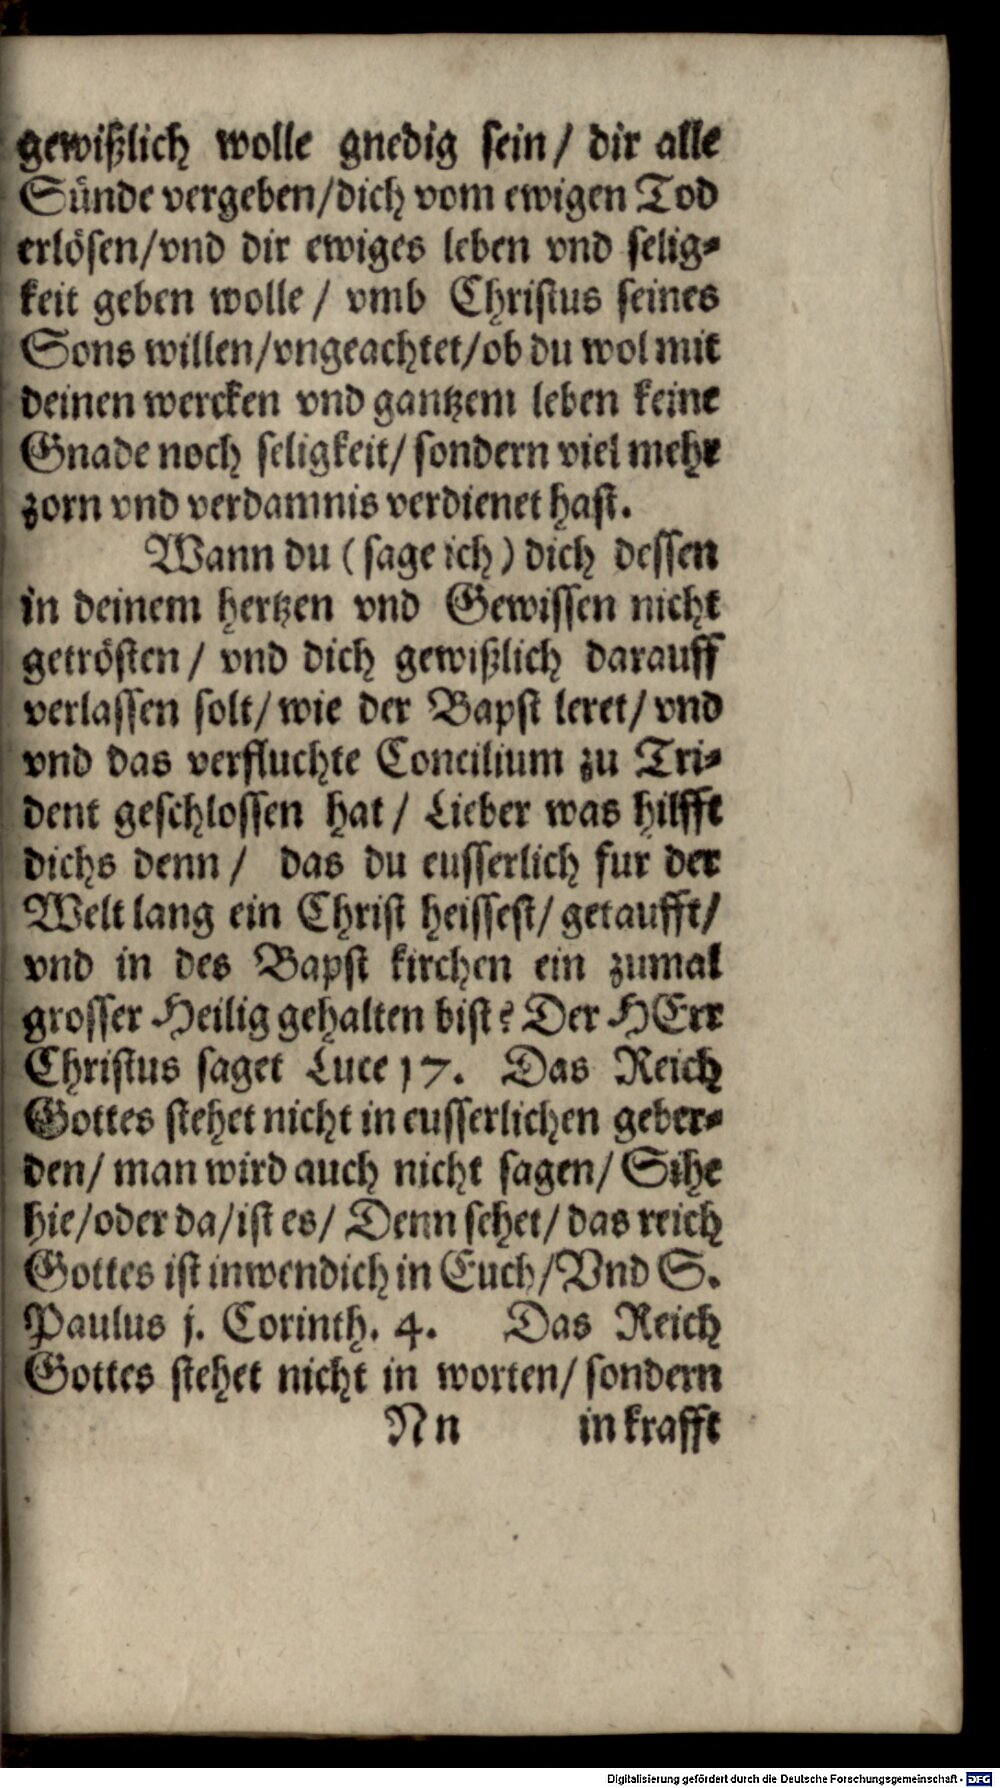 gewißlich wolle gnedig sein/ dir alle
Sünde vergeben/dich vom ewigen Tod
erlösen/vnd dir ewiges leben vnd selig⸗
keit geben wolle/ vmb Christus seines
Sons willen/vngeachtet/ob du wol mit
deinen wercken vnd gantzem leben keine
Gnade noch seligkeit/ sondern viel mehr
zorn vnd verdamnis verdienet hast.
Wann du (sage ich) dich dessen
in deinem hertzen vnd Gewissen nicht
getrösten/ vnd dich gewißlich darauff
verlassen solt/ wie der Bapst leret/ vnd
vnd das verfluchte Concilium zu Tri⸗
dent geschlossen hat/ Lieber was hilfft
dichs denn/ das du eusserlich fur der
Welt lang ein Christ heissest/ getaufft/
vnd in des Bapst kirchen ein zumal
grosser Heilig gehalten bist? Der HErr
Christus saget Luce 17. Das Reich
Gottes stehet nicht in eusserlichen geber⸗
den/ man wird auch nicht sagen/ Sihe
hie/oder da/ist es/ Denn sehet/ das reich
Gottes ist inwendich in Euch/Vnd S.
Paulus j. Corinth. 4. Das Reich
Gottes stehet nicht in worten/ sondern
Nn in krafft
Digitalisierung gefördert durch die Deutsche Forschungsgemeinschaft - DFG